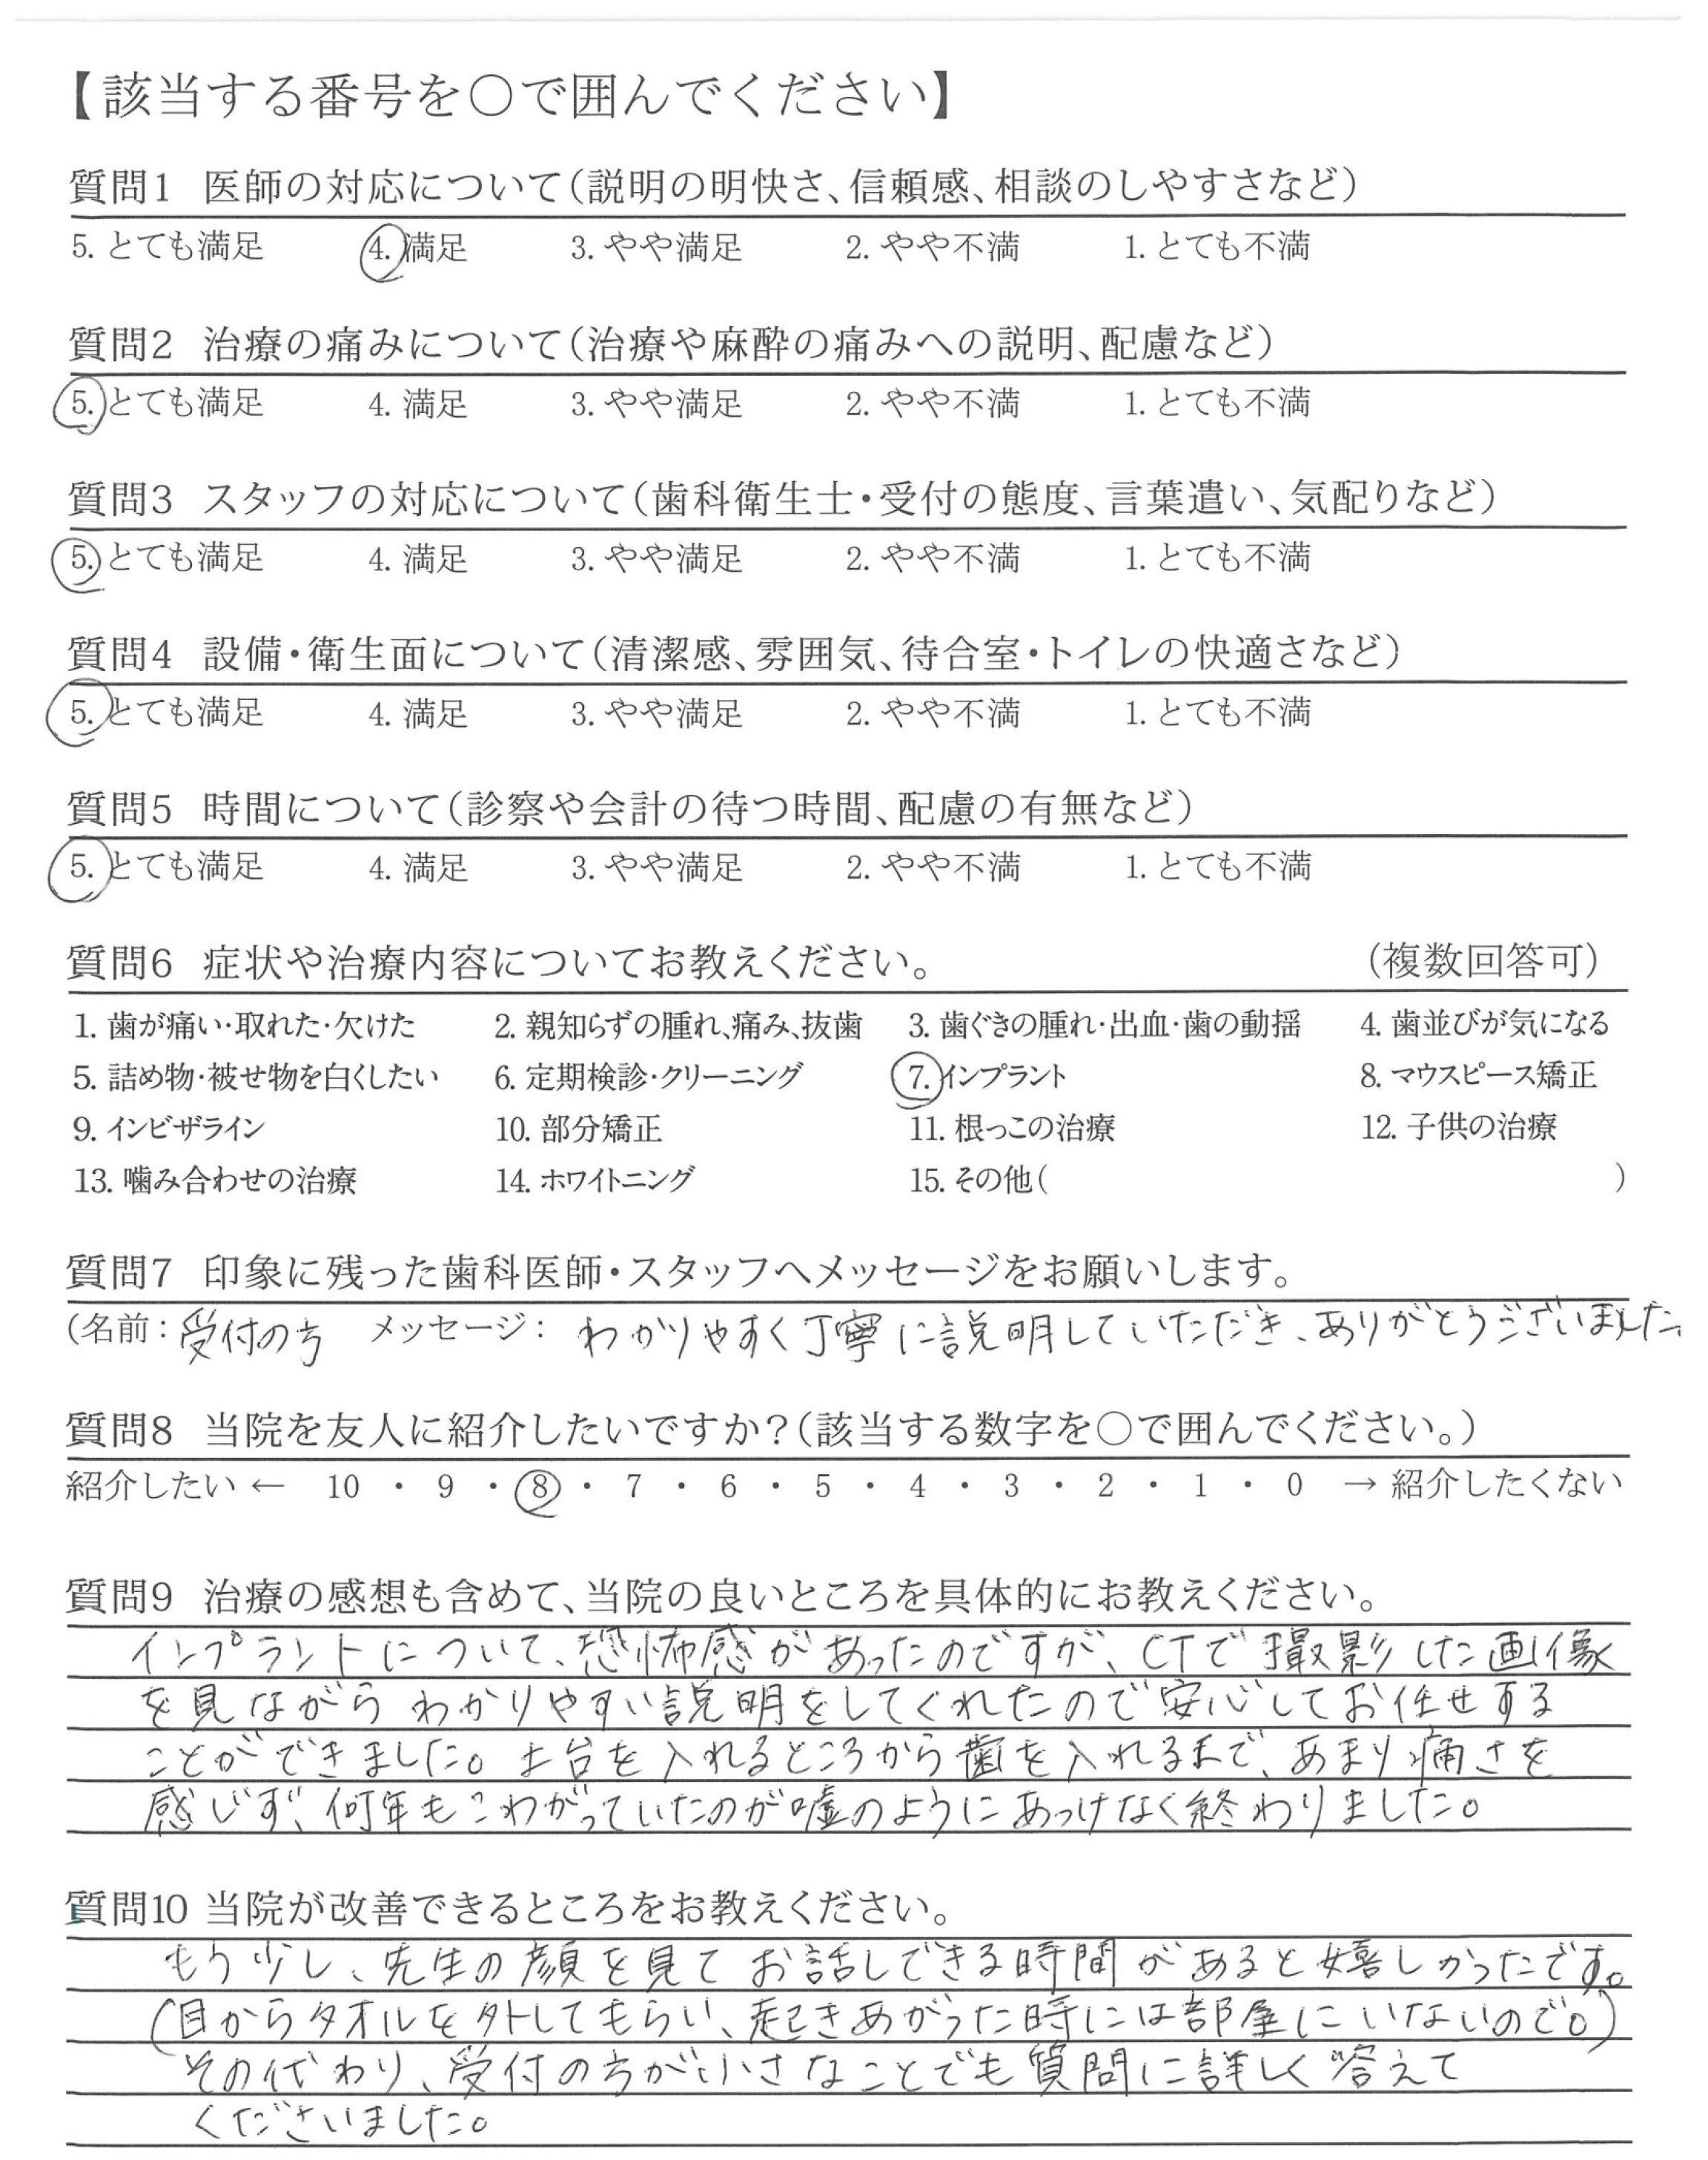 【該当する番号を○で囲んでください】
質問1 医師の対応について(説明の明快さ、信頼感、相談のしやすさなど)
5. とても満足 4. 満足 3. やや満足 2. やや不満 1. とても不満
質問2 治療の痛みについて(治療や麻酔の痛みへの説明、配慮など)
5. とても満足 4. 満足 3. やや満足 2. やや不満 1. とても不満
質問3 スタッフの対応について(歯科衛生士・受付の態度、言葉遣い、気配りなど)
5. とても満足 4. 満足 3. やや満足 2. やや不満 1. とても不満
質問4 設備・衛生面について(清潔感、雰囲気、待合室・トイレの快適さなど)
5. とても満足 4. 満足 3. やや満足 2. やや不満 1. とても不満
質問5 時間について(診察や会計の待つ時間、配慮の有無など)
5. とても満足 4. 満足 3. やや満足 2. やや不満 1. とても不満
質問6 症状や治療内容についてお教えください。 (複数回答可)
1. 歯が痛い・取れた・欠けた 2. 親知らずの腫れ、痛み、抜歯 3. 歯ぐきの腫れ・出血・歯の動揺 4. 歯並びが気になる
5. 詰め物・被せ物を白くしたい 6. 定期検診・クリーニング 7. インプラント 8. マウスピース矯正
9. インビザライン 10. 部分矯正 11. 根っこの治療 12. 子供の治療
13. 噛み合わせの治療 14. ホワイトニング 15. その他( )
質問7 印象に残った歯科医師・スタッフへメッセージをお願いします。
(名前：受付の方 メッセージ： わかりやすく丁寧に説明していただき、ありがとうございました。
質問8 当院を友人に紹介したいですか？(該当する数字を○で囲んでください。)
紹介したい ← 10 ・ 9 ・ 8 ・ 7 ・ 6 ・ 5 ・ 4 ・ 3 ・ 2 ・ 1 ・ 0 → 紹介したくない
質問9 治療の感想も含めて、当院の良いところを具体的にお教えください。
インプラントについて、恐怖感があったのですが、CTで撮影した画像
を見ながらわかりやすい説明をしてくれたので安心してお任せする
ことができました。土台を入れるところから歯を入れるまで、あまり痛さを
感じず、何年もこわがっていたのが嘘のようにあっけなく終わりました。
質問10 当院が改善できるところをお教えください。
もう少し、先生の顔を見てお話しできる時間があると嬉しかったです。
(目からタオルを外してもらい、起きあがった時には部屋にいないので。)
その代わり、受付の方が小さなことでも質問に詳しく答えて
くださいました。